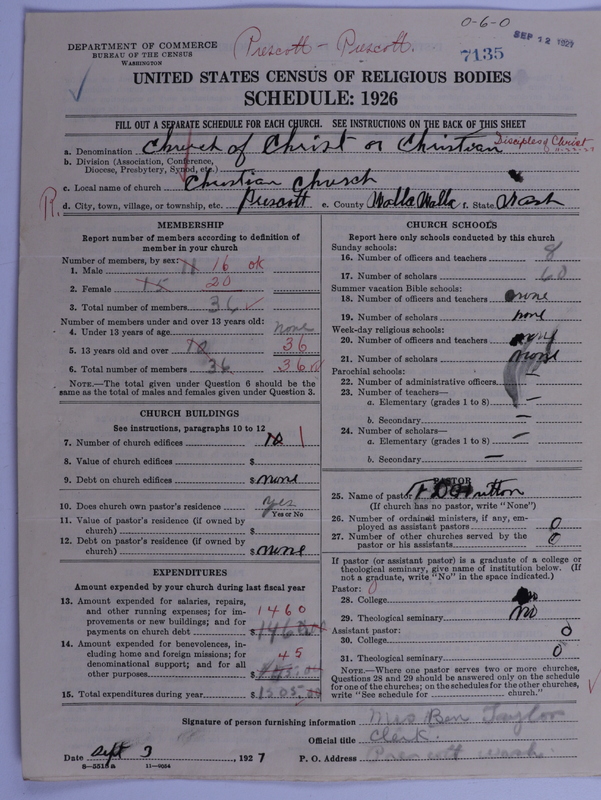 0-6-0
SEP 12 1927
DEPARTMENT OF COMMERCE
BUREAU OF THE CENSUS
WASHINGTON
Prescott - Prescott.
7135
UNITED STATES CENSUS OF RELIGIOUS BODIES
SCHEDULE: 1926
FILL OUT A SEPARATE SCHEDULE FOR EACH CHURCH. SEE INSTRUCTIONS ON THE BACK OF THIS SHEET
a. Denomination Church of Christ or Christian Disciples of Christ
b. Division (Association, Conference, Diocese, Presbytery, Synod, etc.)
c. Local name of church Christian Church
R.
d. City, town, village, or township, etc. Prescott e. County Walla Walla f. State Wash
MEMBERSHIP
Report number of members according to definition of
member in your church
Number of members, by sex:
1. Male 11 16 ok
2. Female 15 20
3. Total number of members 36
Number of members under and over 13 years old:
4. Under 13 years of age none
5. 13 years old and over 36
6. Total number of members 36 36
NOTE.—The total given under Question 6 should be the
same as the total of males and females given under Question 3.
CHURCH BUILDINGS
See instructions, paragraphs 10 to 12
7. Number of church edifices 1
8. Value of church edifices $
9. Debt on church edifices $ none
10. Does church own pastor's residence yes
Yes or No
11. Value of pastor's residence (if owned by
church) $
12. Debt on pastor's residence (if owned by
church) $ none
EXPENDITURES
Amount expended by your church during last fiscal year
13. Amount expended for salaries, repairs,
and other running expenses; for im-
provements or new buildings; and for
payments on church debt $ 1460
14. Amount expended for benevolences, in-
cluding home and foreign missions; for
denominational support; and for all
other purposes $ 45
15. Total expenditures during year $ 1505.00
CHURCH SCHOOLS
Report here only schools conducted by this church
Sunday schools:
16. Number of officers and teachers 8
17. Number of scholars 60
Summer vacation Bible schools:
18. Number of officers and teachers none
19. Number of scholars none
Week-day religious schools:
20. Number of officers and teachers none
21. Number of scholars none
Parochial schools:
22. Number of administrative officers —
23. Number of teachers—
a. Elementary (grades 1 to 8) —
b. Secondary —
24. Number of scholars—
a. Elementary (grades 1 to 8) —
b. Secondary —
PASTOR
25. Name of pastor
(If church has no pastor, write "None")
26. Number of ordained ministers, if any, em-
ployed as assistant pastors 0
27. Number of other churches served by the
pastor or his assistants 0
If pastor (or assistant pastor) is a graduate of a college or
theological seminary, give name of institution below. (If
not a graduate, write "No" in the space indicated.)
Pastor: 0
28. College
29. Theological seminary No
Assistant pastor:
30. College 0
31. Theological seminary 0
NOTE.—Where one pastor serves two or more churches,
Questions 28 and 29 should be answered only on the schedule
for one of the churches; on the schedules for the other churches,
write "See schedule for church."
Signature of person furnishing information Mrs Ben Taylor
Official title Clerk.
Date Sept 3, 1927 P. O. Address Prescott Wash.
8-5515a 11-9054